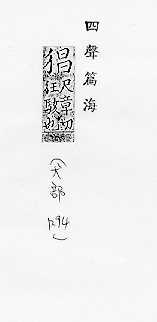 四聲篇海
猖
尺章切
狂駭也
(犬部
P.94)